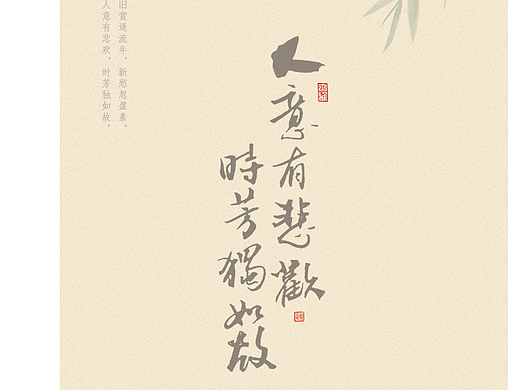 人意有悲歡
時芳獨如故
旧赏逐流年，新愁忽盈素。
人意有悲欢，时芳独如故。